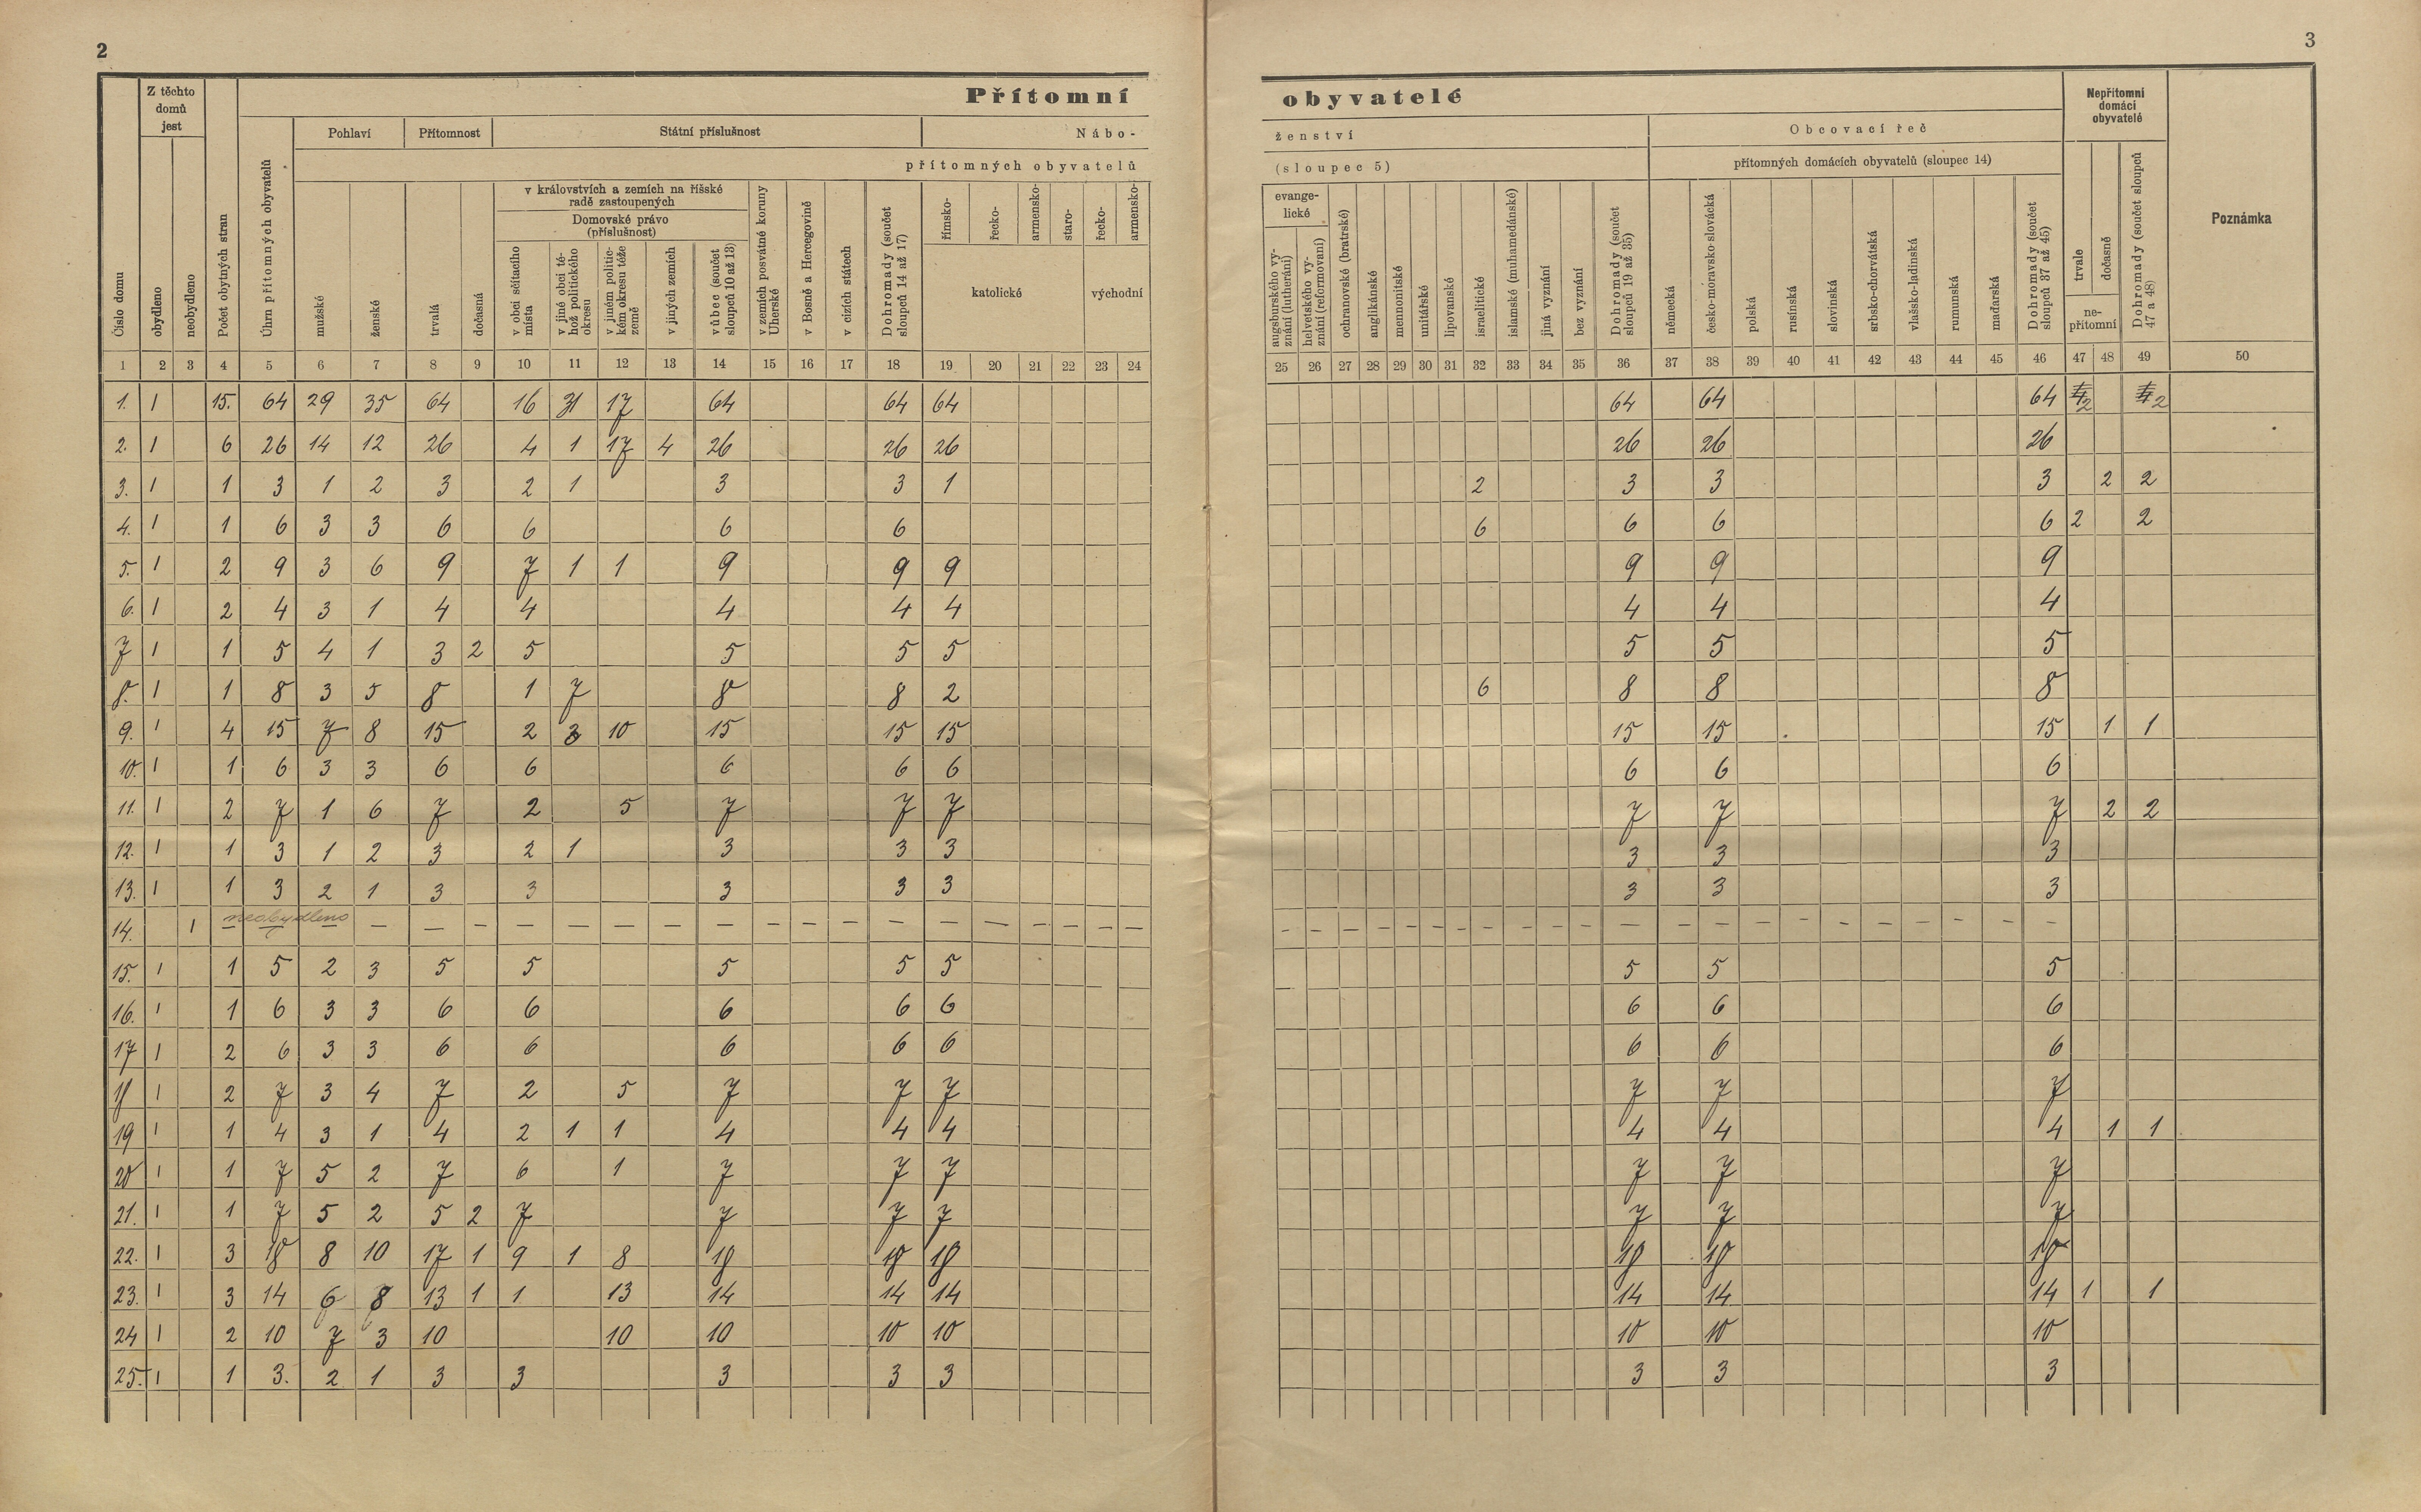 2
3
Přítomní obyvatelé
Číslo domu
Z těchto domů jest
obydleno
neobydleno
Počet obytných stran
Úhrn přítomných obyvatelů
Pohlaví
Přítomnost
Státní příslušnost
Nábo-
ženství
přítomných obyvatelů
(sloupec 5)
mužské
ženské
trvalá
dočasná
v královstvích a zemích na říšské radě zastoupených
Domovské právo (příslušnost)
v obci sčítacího místa
v jiné obci téhož politického okresu
v jiném politickém okresu téže země
v jiných zemích
vůbec (součet sloupců 10 až 13)
v zemích posvátné koruny Uherské
v Bosně a Hercegovině
v cizích státech
Dohromady (součet sloupců 14 až 17)
římsko-
řecko-
armensko-
staro-
katolické
řecko-
armensko-
východní
evangelické
augsburského vyznání (lutheráni)
helvetského vyznání (reformovaní)
ochranovské (bratrské)
anglikánské
mennonitské
unitářské
lipovanské
israelitické
islamské (muhamedánské)
jiná vyznání
bez vyznání
Dohromady (součet sloupců 19 až 35)
Obcovací řeč
přítomných domácích obyvatelů (sloupec 14)
německá
česko-moravsko-slovácká
polská
rusínská
slovinská
srbsko-chorvátská
vlašsko-ladinská
rumunská
maďarská
Dohromady (součet sloupců 37 až 45)
Nepřítomní domácí obyvatelé
trvale
dočasně
nepřítomní
Dohromady (součet sloupců 47 a 48)
Poznámka
1 2 3 4 5 6 7 8 9 10 11 12 13 14 15 16 17 18 19 20 21 22 23 24 25 26 27 28 29 30 31 32 33 34 35 36 37 38 39 40 41 42 43 44 45 46 47 48 49 50
1. 1 15. 64 29 35 64 16 31 17 64 64 64 64 64 64 2 2
2. 1 6 26 14 12 26 4 1 17 4 26 26 26 26 26 26
3. 1 1 3 1 2 3 2 1 3 3 1 2 3 3 3 2 2
4. 1 1 6 3 3 6 6 6 6 6 6 6 6 2 2
5. 1 2 9 3 6 9 7 1 1 9 9 9 9 9 9
6. 1 2 4 3 1 4 4 4 4 4 4 4 4
7 1 1 5 4 1 3 2 5 5 5 5 5 5 5
8. 1 1 8 3 5 8 1 7 8 8 2 6 8 8 8
9. 1 4 15 7 8 15 2 3 10 15 15 15 15 15 15 1 1
10. 1 1 6 3 3 6 6 6 6 6 6 6 6
11. 1 2 7 1 6 7 2 5 7 7 7 7 7 7 2 2
12. 1 1 3 1 2 3 2 1 3 3 3 3 3 3
13. 1 1 3 2 1 3 3 3 3 3 3 3 3
14. 1 neobydleno — — — — — — — — — — — — — — — — — — — — — — — — — — — — — — — — — — — — — — — — — — —
15. 1 1 5 2 3 5 5 5 5 5 5 5 5
16. 1 1 6 3 3 6 6 6 6 6 6 6 6
17 1 2 6 3 3 6 6 6 6 6 6 6 6
18 1 2 7 3 4 7 2 5 7 7 7 7 7 7
19 1 1 4 3 1 4 2 1 1 4 4 4 4 4 4 1 1
20 1 1 7 5 2 7 6 1 7 7 7 7 7 7
21. 1 1 7 5 2 5 2 7 7 7 7 7 7 7
22. 1 3 18 8 10 17 1 9 1 8 18 18 18 18 18 18
23. 1 3 14 6 8 13 1 1 13 14 14 14 14 14 14 1 1
24 1 2 10 7 3 10 10 10 10 10 10 10 10
25. 1 1 3. 2 1 3 3 3 3 3 3 3 3